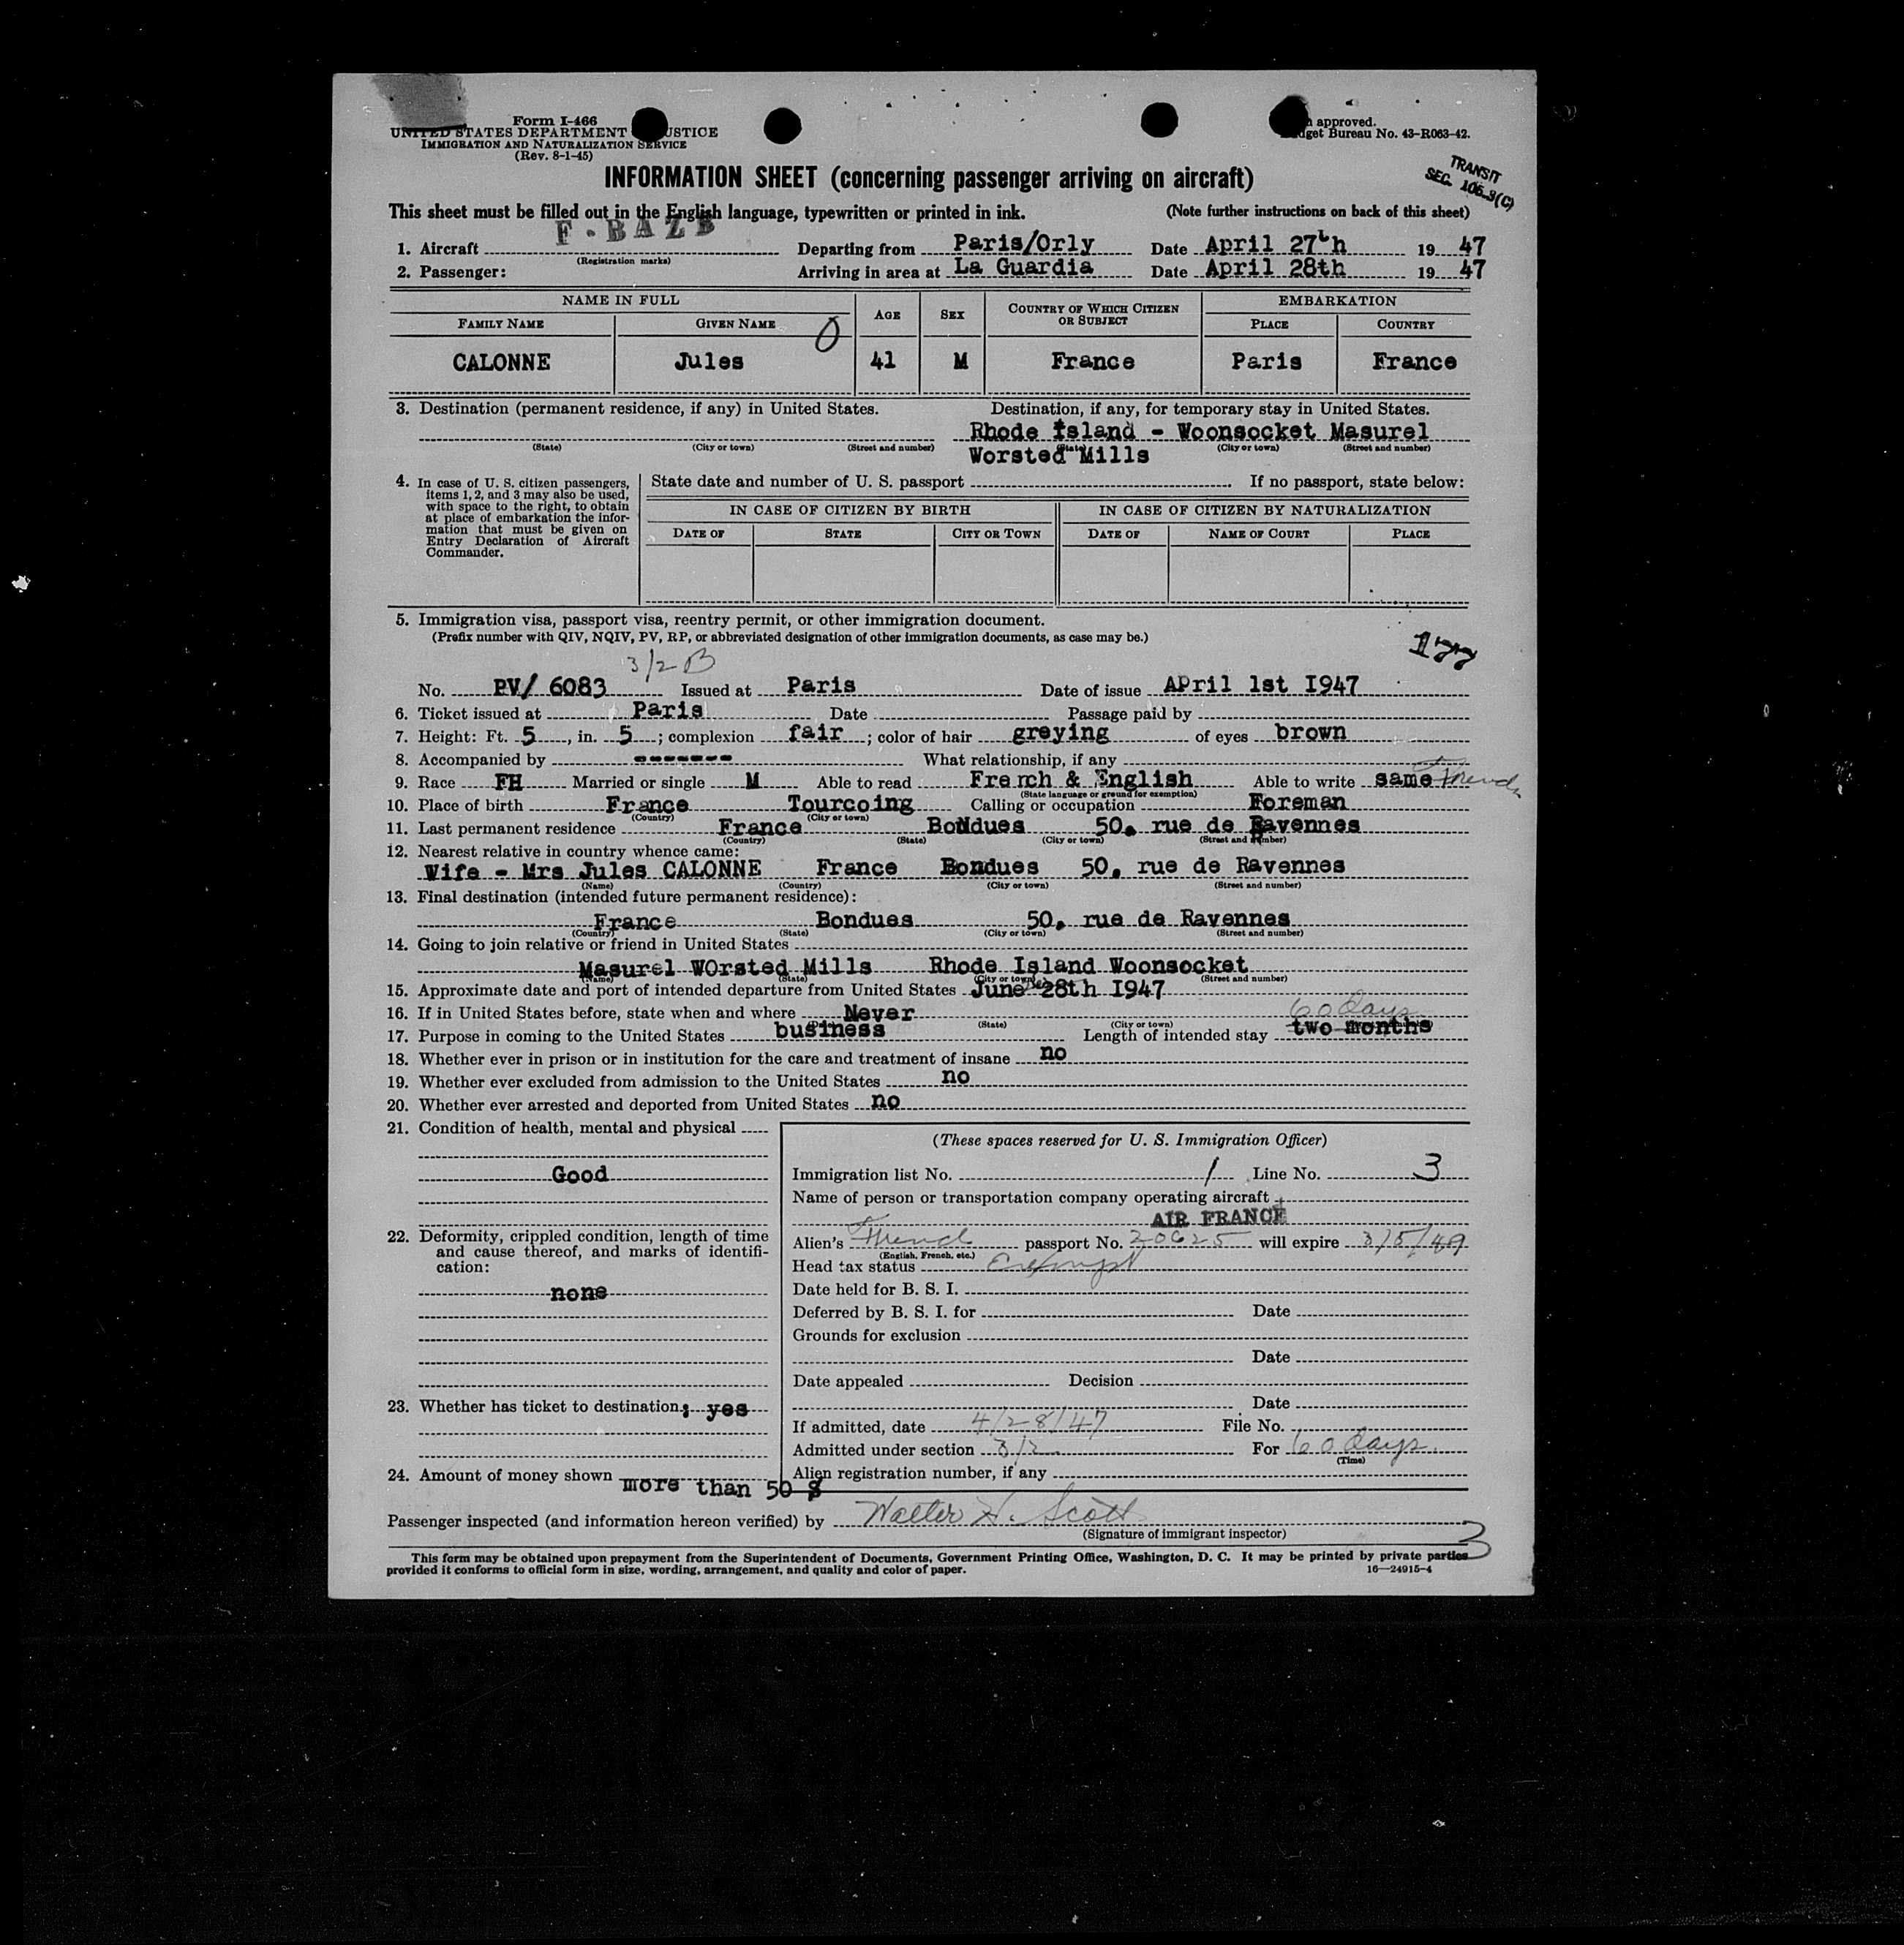 Form I-466
UNITED STATES DEPARTMENT JUSTICE
IMMIGRATION AND NATURALIZATION SERVICE
(Rev. 8-1-45)
approved.
Budget Bureau No. 43-R063-42.
TRANSIT
SEC. 106.3(C)
INFORMATION SHEET (concerning passenger arriving on aircraft)
This sheet must be filled out in the English language, typewritten or printed in ink. (Note further instructions on back of this sheet)
1. Aircraft F-BAZB Departing from Paris/Orly Date April 27th 19 47
(Registration marks)
2. Passenger: Arriving in area at La Guardia Date April 28th 19 47
NAME IN FULL AGE SEX COUNTRY OF WHICH CITIZEN OR SUBJECT EMBARKATION
FAMILY NAME GIVEN NAME PLACE COUNTRY
0
CALONNE Jules 41 M France Paris France
3. Destination (permanent residence, if any) in United States. Destination, if any, for temporary stay in United States.
Rhode Island - Woonsocket Masurel
(State) (City or town) (Street and number) (State) (City or town) (Street and number)
Worsted Mills
4. In case of U. S. citizen passengers, items 1, 2, and 3 may also be used, with space to the right, to obtain at place of embarkation the information that must be given on Entry Declaration of Aircraft Commander.
State date and number of U. S. passport If no passport, state below:
IN CASE OF CITIZEN BY BIRTH IN CASE OF CITIZEN BY NATURALIZATION
DATE OF STATE CITY OR TOWN DATE OF NAME OF COURT PLACE
5. Immigration visa, passport visa, reentry permit, or other immigration document.
(Prefix number with QIV, NQIV, PV, RP, or abbreviated designation of other immigration documents, as case may be.)
177
3/2 B
No. PV/ 6083 Issued at Paris Date of issue APril 1st I947
6. Ticket issued at Paris Date Passage paid by
7. Height: Ft. 5, in. 5; complexion fair; color of hair greying of eyes brown
8. Accompanied by ------- What relationship, if any
9. Race FH Married or single M Able to read French & English Able to write same French
(State language or ground for exemption)
10. Place of birth France Tourcoing Calling or occupation Foreman
(Country) (City or town)
11. Last permanent residence France BoNdues 50, rue de Ravennes
(Country) (State) (City or town) (Street and number)
12. Nearest relative in country whence came:
Wife - Mrs Jules CALONNE France Bondues 50, rue de Ravennes
(Name) (Country) (City or town) (Street and number)
13. Final destination (intended future permanent residence):
France Bondues 50, rue de Ravennes
(Country) (State) (City or town) (Street and number)
14. Going to join relative or friend in United States
Masurel WOrsted Mills Rhode Island Woonsocket
(Name) (State) (City or town) (Street and number)
15. Approximate date and port of intended departure from United States June 28th I947
16. If in United States before, state when and where Never 60 days
(State) (City or town)
17. Purpose in coming to the United States business Length of intended stay two months
18. Whether ever in prison or in institution for the care and treatment of insane no
19. Whether ever excluded from admission to the United States no
20. Whether ever arrested and deported from United States no
21. Condition of health, mental and physical
Good
22. Deformity, crippled condition, length of time and cause thereof, and marks of identification:
none
23. Whether has ticket to destination; yes
24. Amount of money shown more than 50 $
(These spaces reserved for U. S. Immigration Officer)
Immigration list No. 1 Line No. 3
Name of person or transportation company operating aircraft
AIR FRANCE
Alien's French passport No. 20625 will expire 3/5/49
(English, French, etc.)
Head tax status Exempt
Date held for B. S. I.
Deferred by B. S. I. for Date
Grounds for exclusion
Date
Date appealed Decision
Date
If admitted, date 4/28/47 File No.
Admitted under section 3/2 For 60 days
(Time)
Alien registration number, if any
Passenger inspected (and information hereon verified) by Walter H. Scott
(Signature of immigrant inspector)
3
This form may be obtained upon prepayment from the Superintendent of Documents, Government Printing Office, Washington, D. C. It may be printed by private parties
provided it conforms to official form in size, wording, arrangement, and quality and color of paper. 16—24915-4